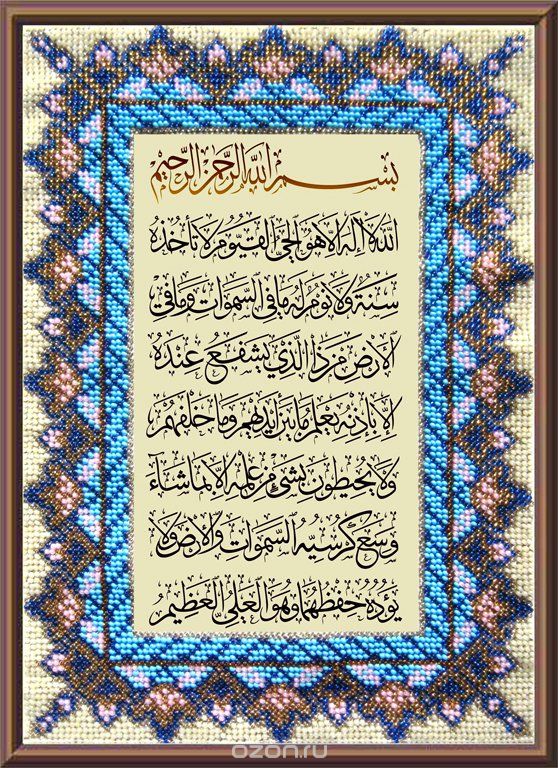 بسم الله الرحمن الرحيم
الله لا إله إلا هو الحي القيوم لا تأخذه
سنة ولا نوم له ما في السموات وما في
الأرض من ذا الذي يشفع عنده
إلا بإذنه يعلم ما بين أيديهم وما خلفهم
ولا يحيطون بشيء من علمه إلا بما شاء
وسع كرسيه السموات والأرض ولا
يؤده حفظهما وهو العلي العظيم
ozon.ru